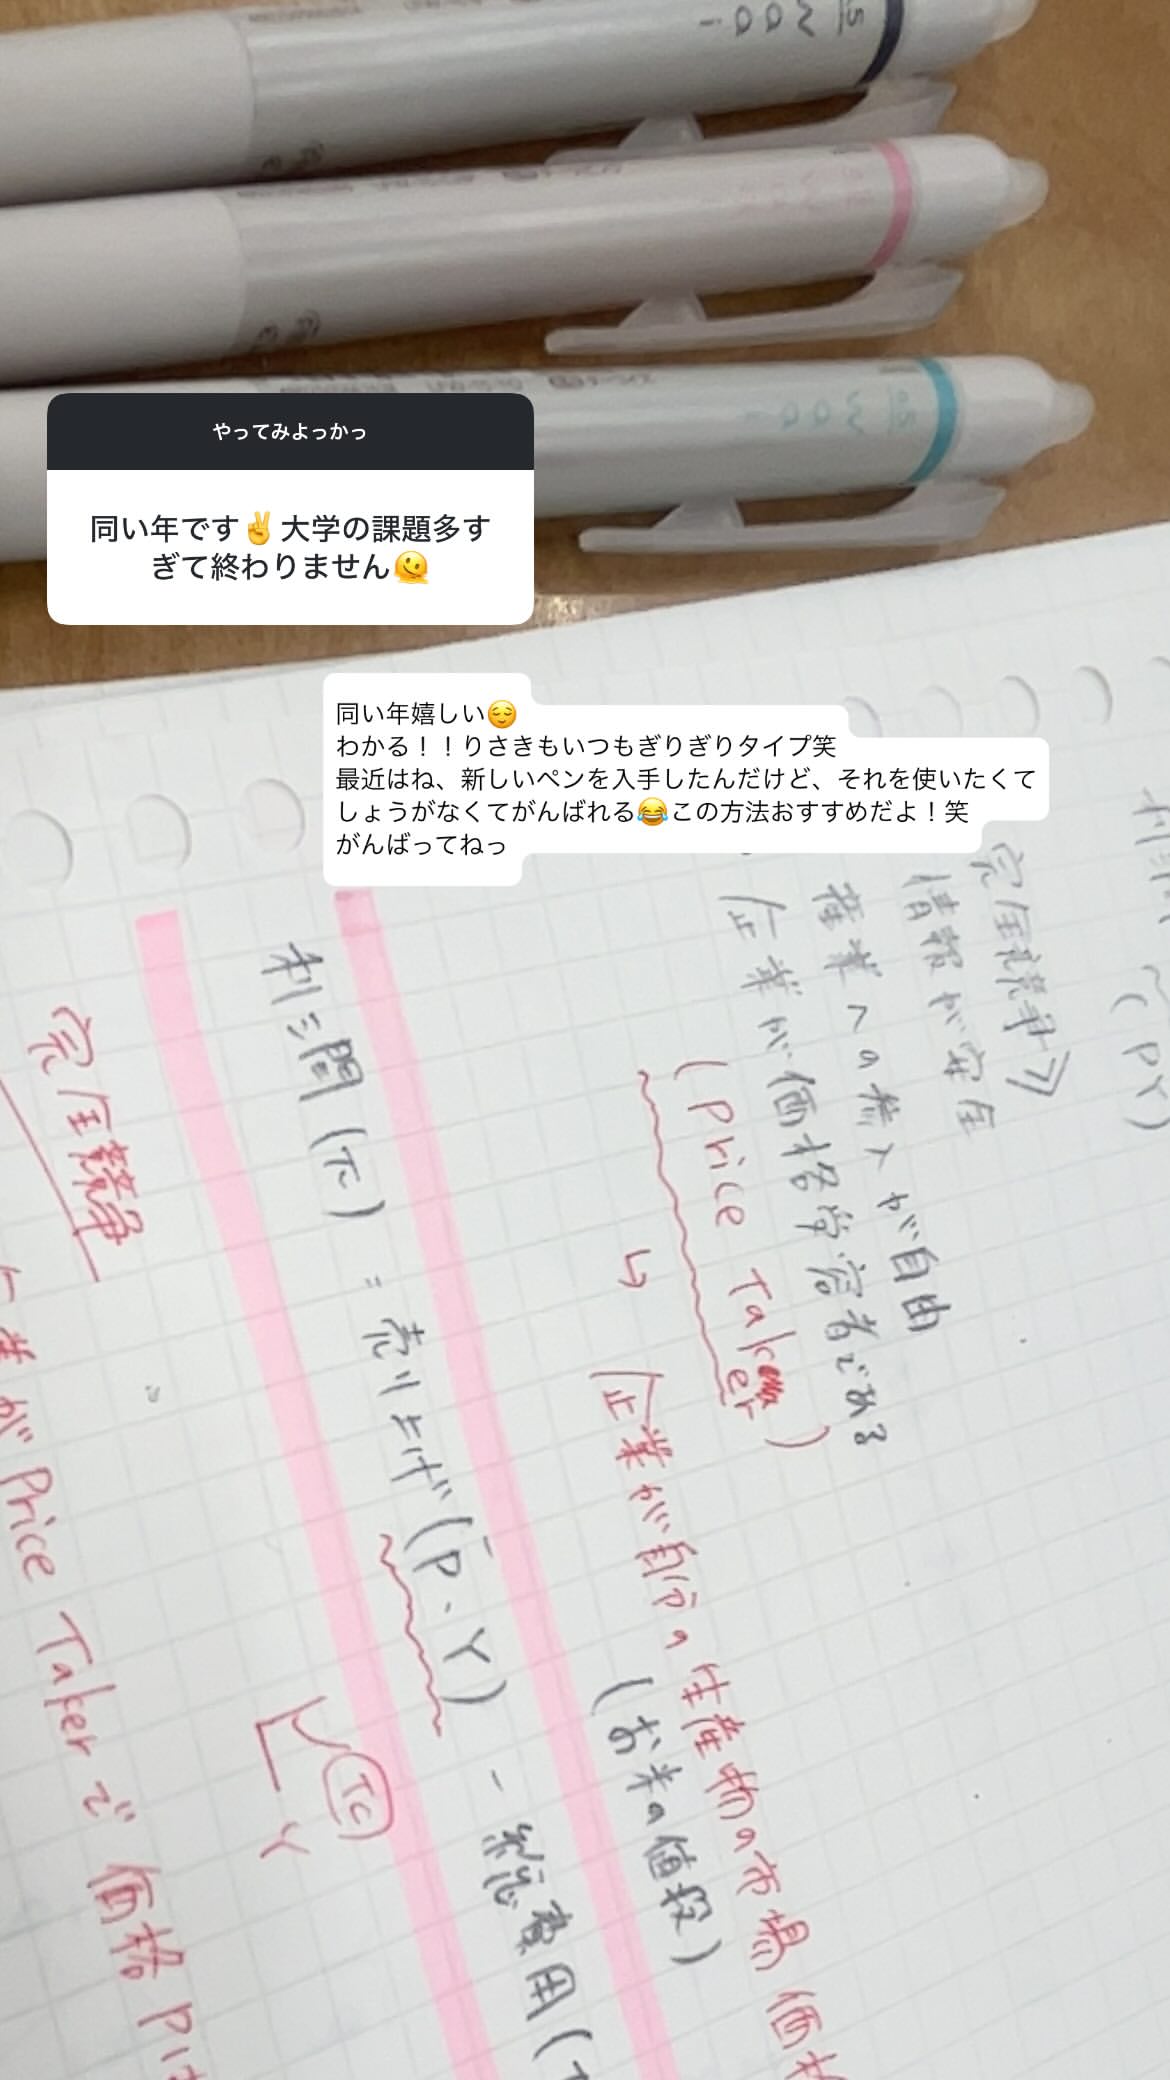 0.5
waai
0.5
waai
やってみよっかっ
同い年です✌️大学の課題多す
ぎて終わりません🫠
同い年嬉しい😌
わかる！！りさきもいつもぎりぎりタイプ笑
最近はね、新しいペンを入手したんだけど、それを使いたくて
しょうがなくてがんばれる😂この方法おすすめだよ！笑
がんばってねっ
(PY)
完全競争》
情報が完全
産業への参入が自由
企業が価格受容者である
(Price Taker)
↳ 企業が自分の生産物の市場価格
(お米の値段)
利潤(π) = 売り上げ(P・Y) - 総費用(
TC
Y
完全競争
業がPrice Takerで価格Pは